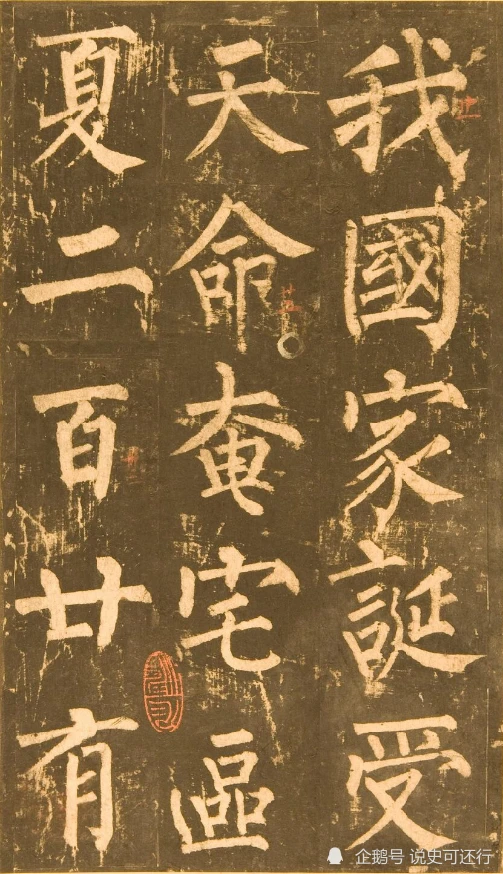 我國家誕受
天命奄宅區
夏二百廿有
企鹅号 说史可还行